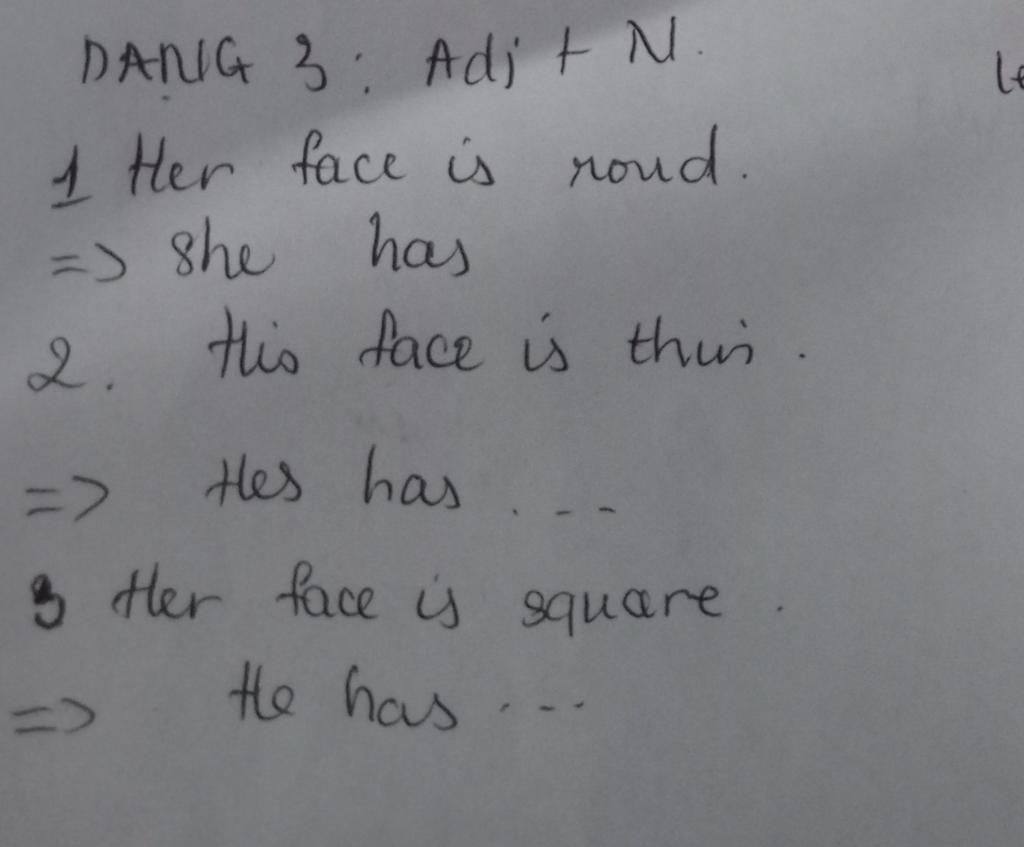 DẠNG 3 : Adj + N.
1 Her face is roud.
=> She has
2. His face is thin.
=> Hes has . - - -
3 Her face is square.
=> He has . - - -